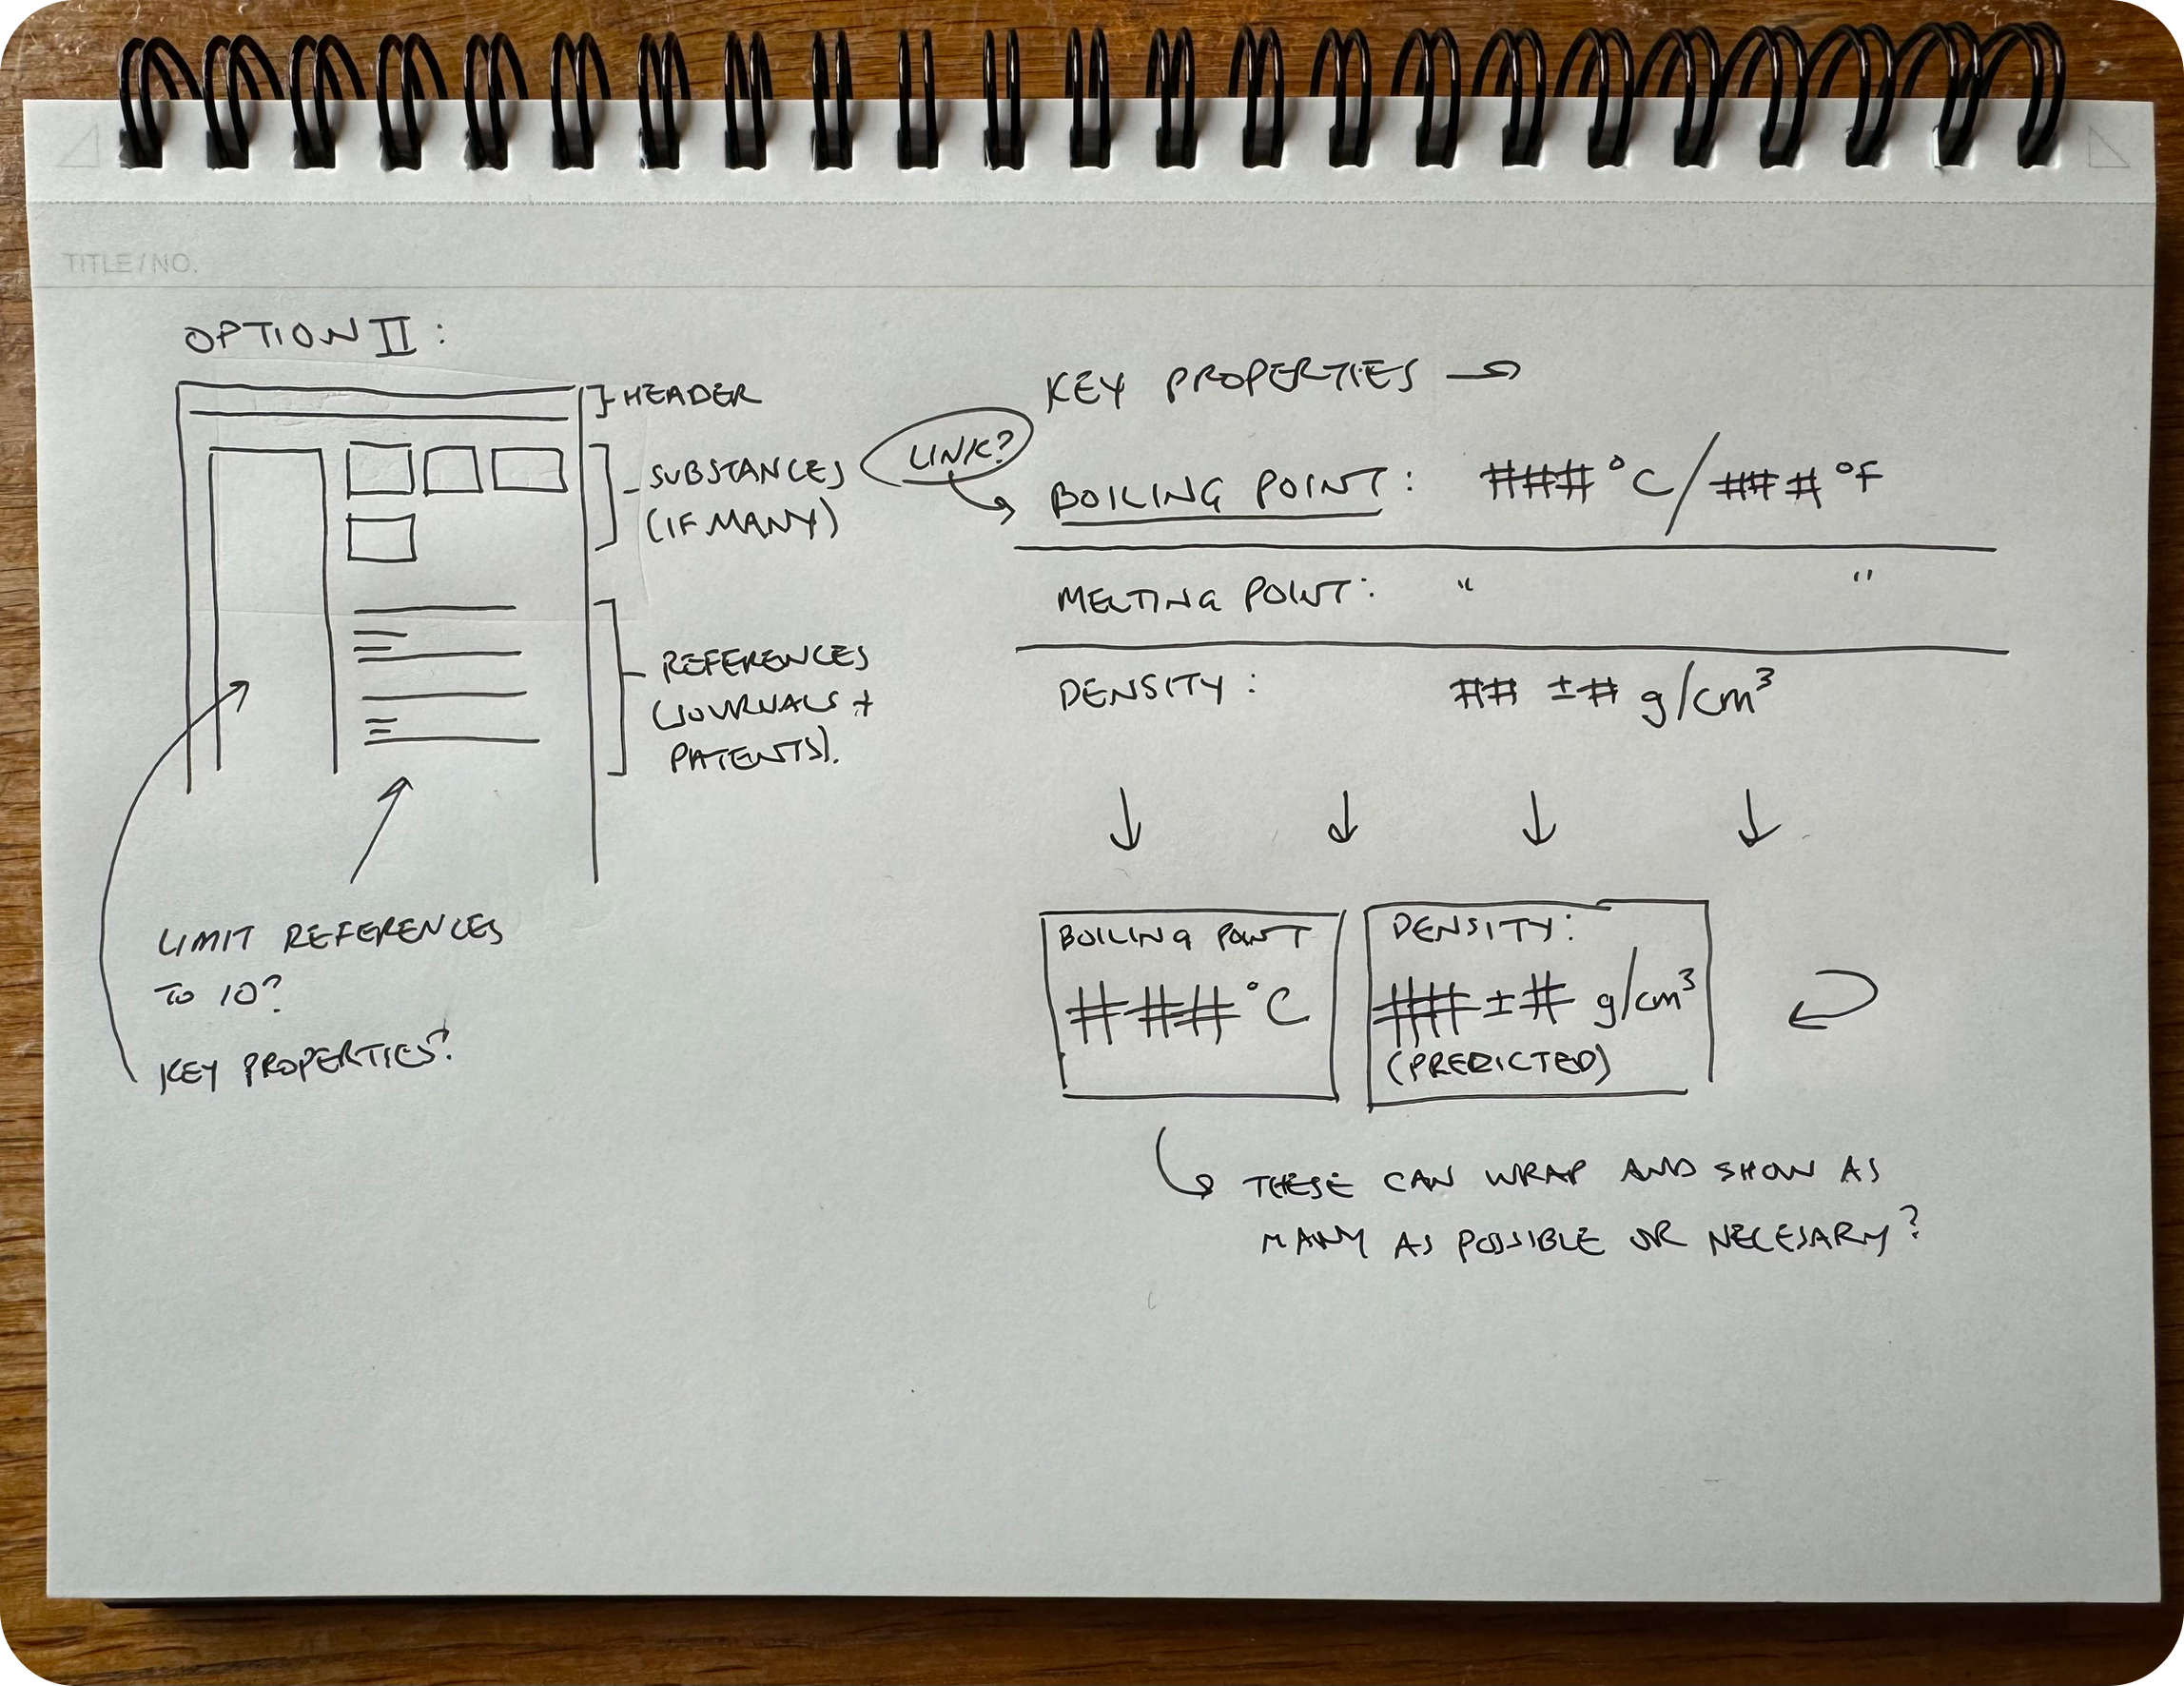 TITLE/NO.
OPTION II:
HEADER
SUBSTANCES
(IF MANY)
REFERENCES
(JOURNALS +
PATENTS).
LIMIT REFERENCES
TO 10?
KEY PROPERTIES?
KEY PROPERTIES →
LINK?
BOILING POINT: ###°C/###°F
MELTING POINT: " "
DENSITY: ## ±# g/cm³
BOILING POINT
###°C
DENSITY:
##±# g/cm³
(PREDICTED)
THESE CAN WRAP AND SHOW AS
MANY AS POSSIBLE OR NECESARY?